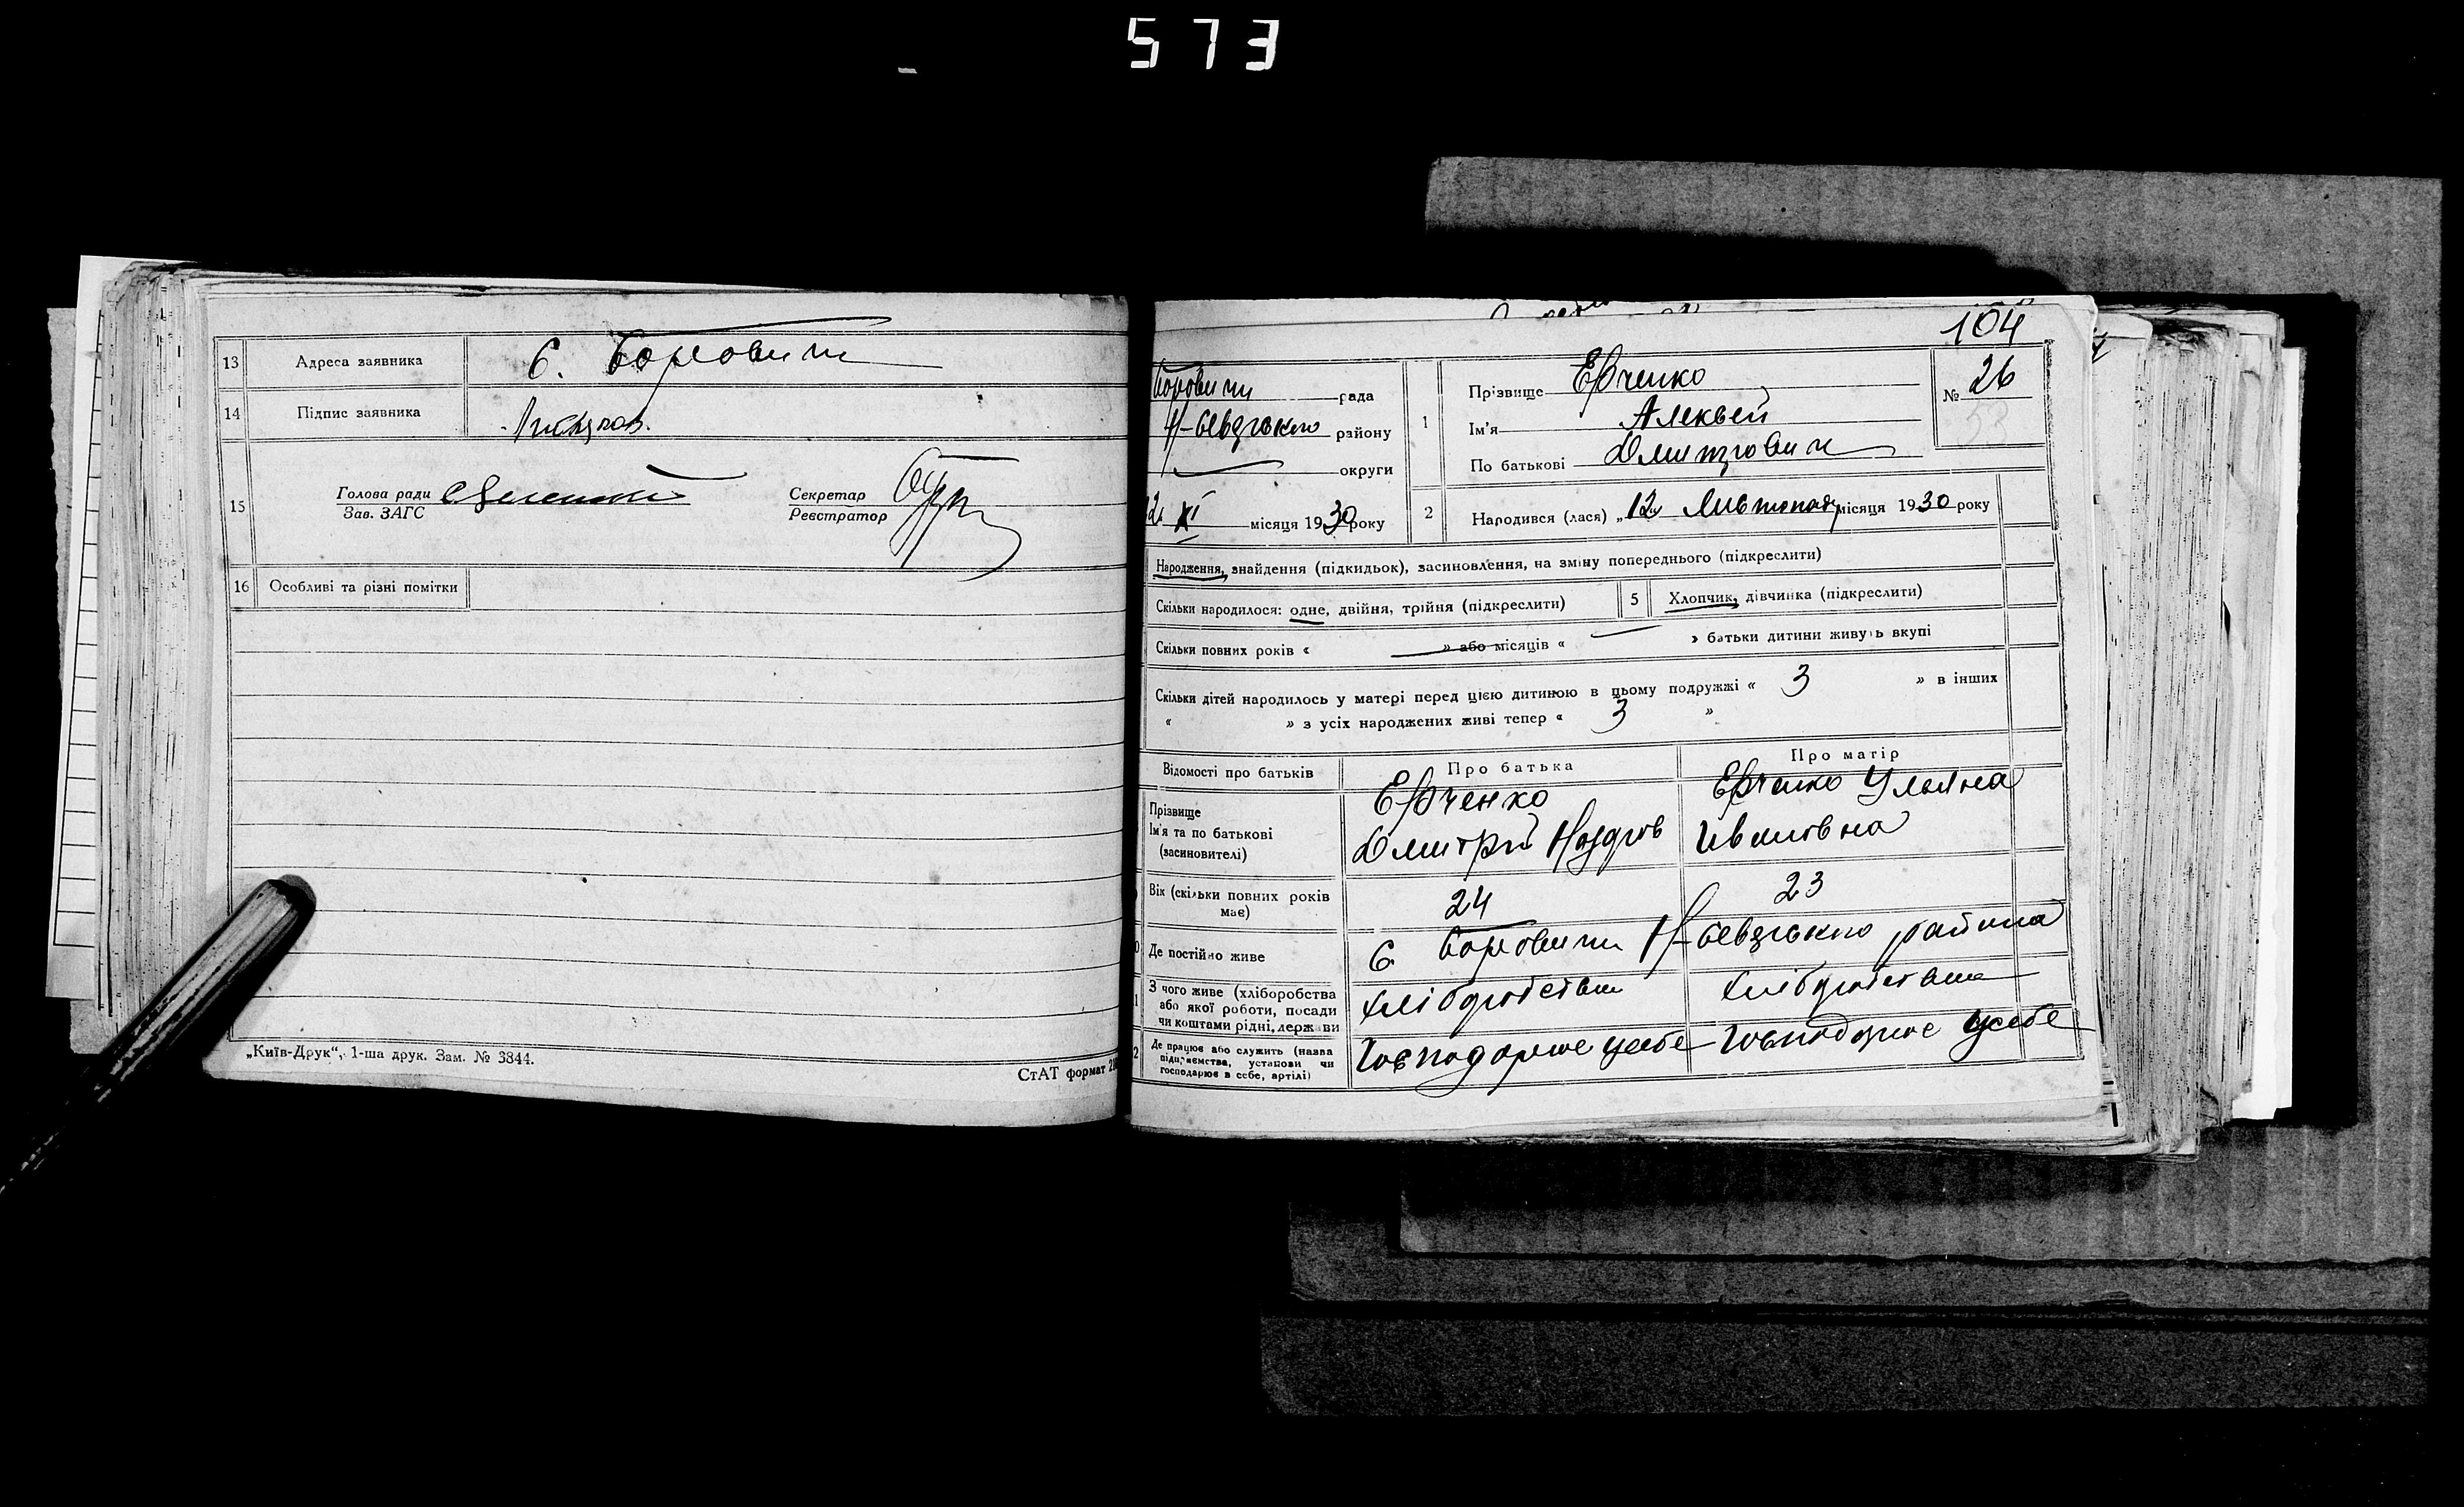 573
13 Адреса заявника С. Боровичи
14 Підпис заявника
15 Голова ради
Зав. ЗАГС
Секретар
Реєстратор
16 Особливі та різні помітки
„Київ-Друк“, 1-ша друк. Зам. № 3844.
СтАТ формат
104
Боровичи рада
району
округи
12 XI місяця 1930 року
1 Прізвище Евченко
Ім'я Алексей
По батькові Дмитрович
№ 26
53
2 Народився (лася) „12„ Листопада місяця 1930 року
Народження, знайдення (підкидьок), засиновлення, на зміну попереднього (підкреслити)
Скільки народилося: одне, двійня, трійня (підкреслити)
5 Хлопчик, дівчинка (підкреслити)
Скільки повних років « » або місяців « » батьки дитини живуть вкупі
Скільки дітей народилось у матері перед цією дитиною в цьому подружжі « 3 » в інших
« » з усіх народжених живі тепер « 3 »
Відомості про батьків Про батька Про матір
Прізвище
Ім'я та по батькові
(засиновителі)
Евченко
Дмитрий
Евченко Ульяна
Ивановна
Вік (скільки повних років
має)
24 23
Де постійно живе С. Боровичи района
З чого живе (хліборобства
або якої роботи, посади
чи коштами рідні, держави
хліборобством хліборобством
Де працює або служить (назва
підприємства, установи чи
господарює в себе, артілі)
Господарює у себе Господарює у себе